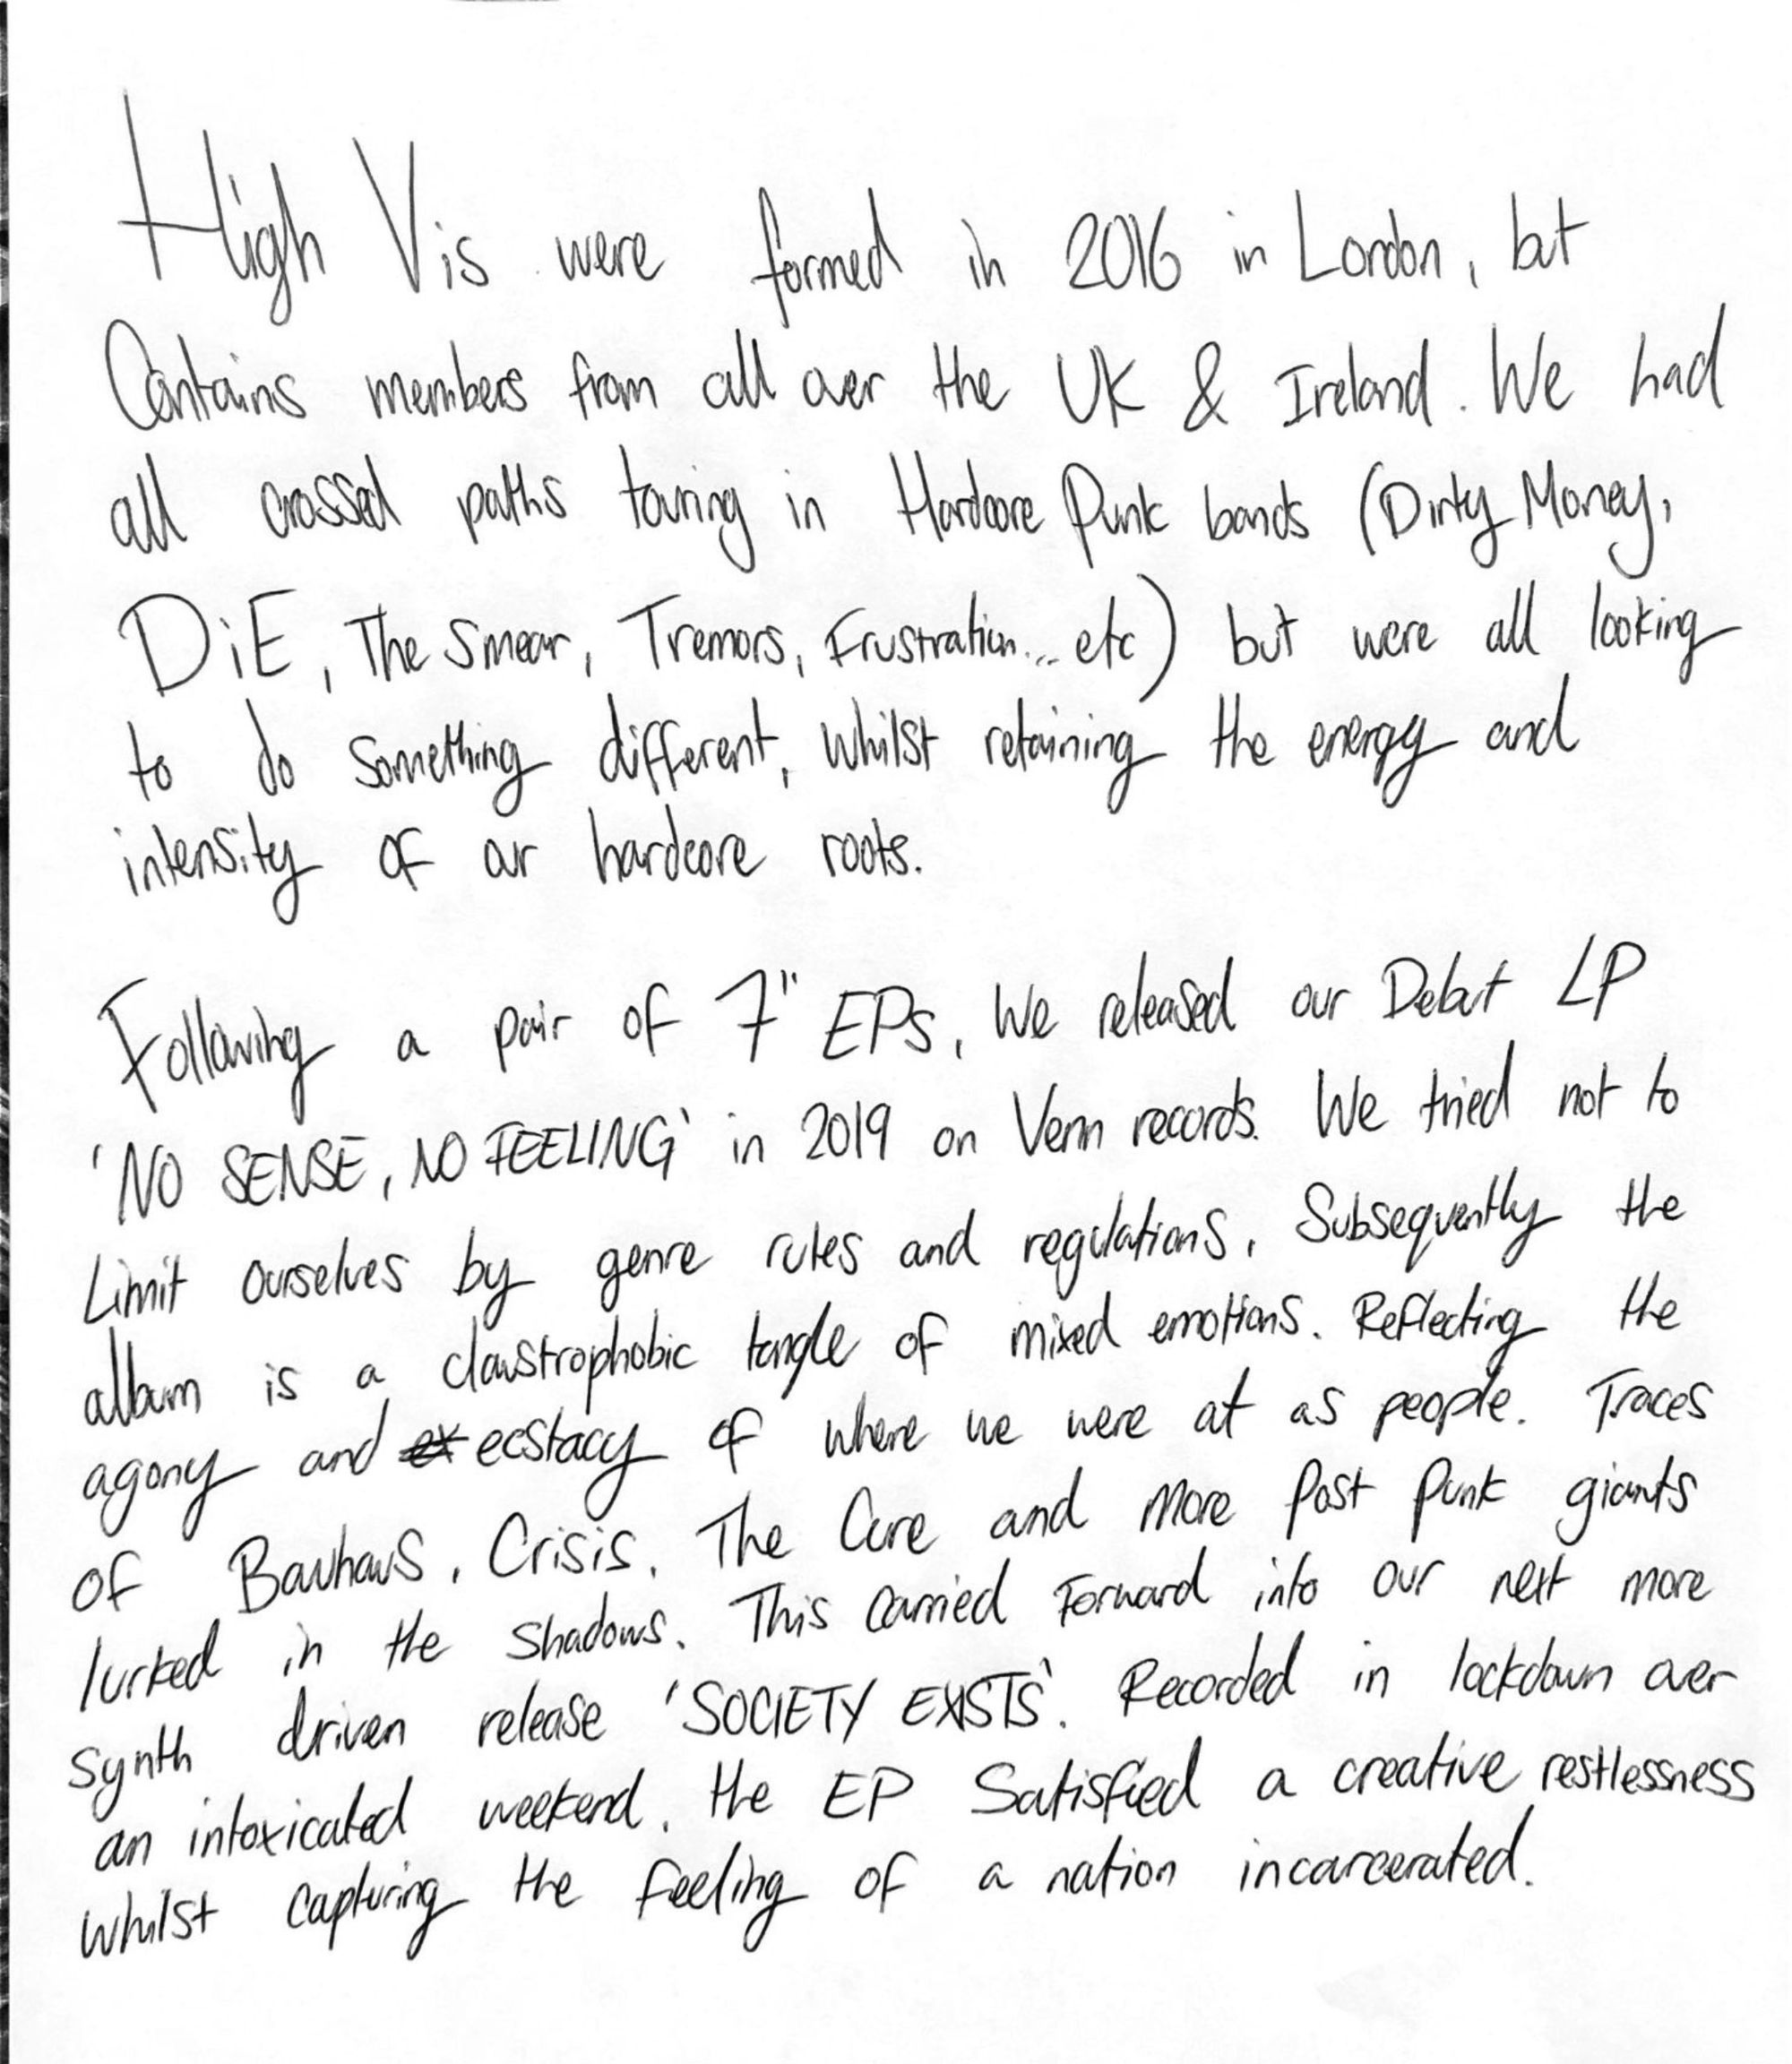 High Vis were formed in 2016 in London, but
Contains members from all over the UK & Ireland. We had
all crossed paths touring in Hardcore Punk bands (Dirty Money,
DiE, The Smear, Tremors, Frustration... etc) but were all looking
to do something different, whilst retaining the energy and
intensity of our hardcore roots.
Following a pair of 7" EPs, We released our Debut LP
'NO SENSE, NO FEELING' in 2019 on Venn records. We tried not to
Limit ourselves by genre rules and regulations. Subsequently the
album is a claustrophobic tangle of mixed emotions. Reflecting the
agony and ex ecstacy of where we were at as people. Traces
of Bauhaus, Crisis, The Cure and more Post Punk giants
lurked in the shadows. This carried Forward into our next more
synth driven release 'SOCIETY EXISTS'. Recorded in lockdown over
an intoxicated weekend, the EP Satisfied a creative restlessness
whilst capturing the feeling of a nation incarcerated.